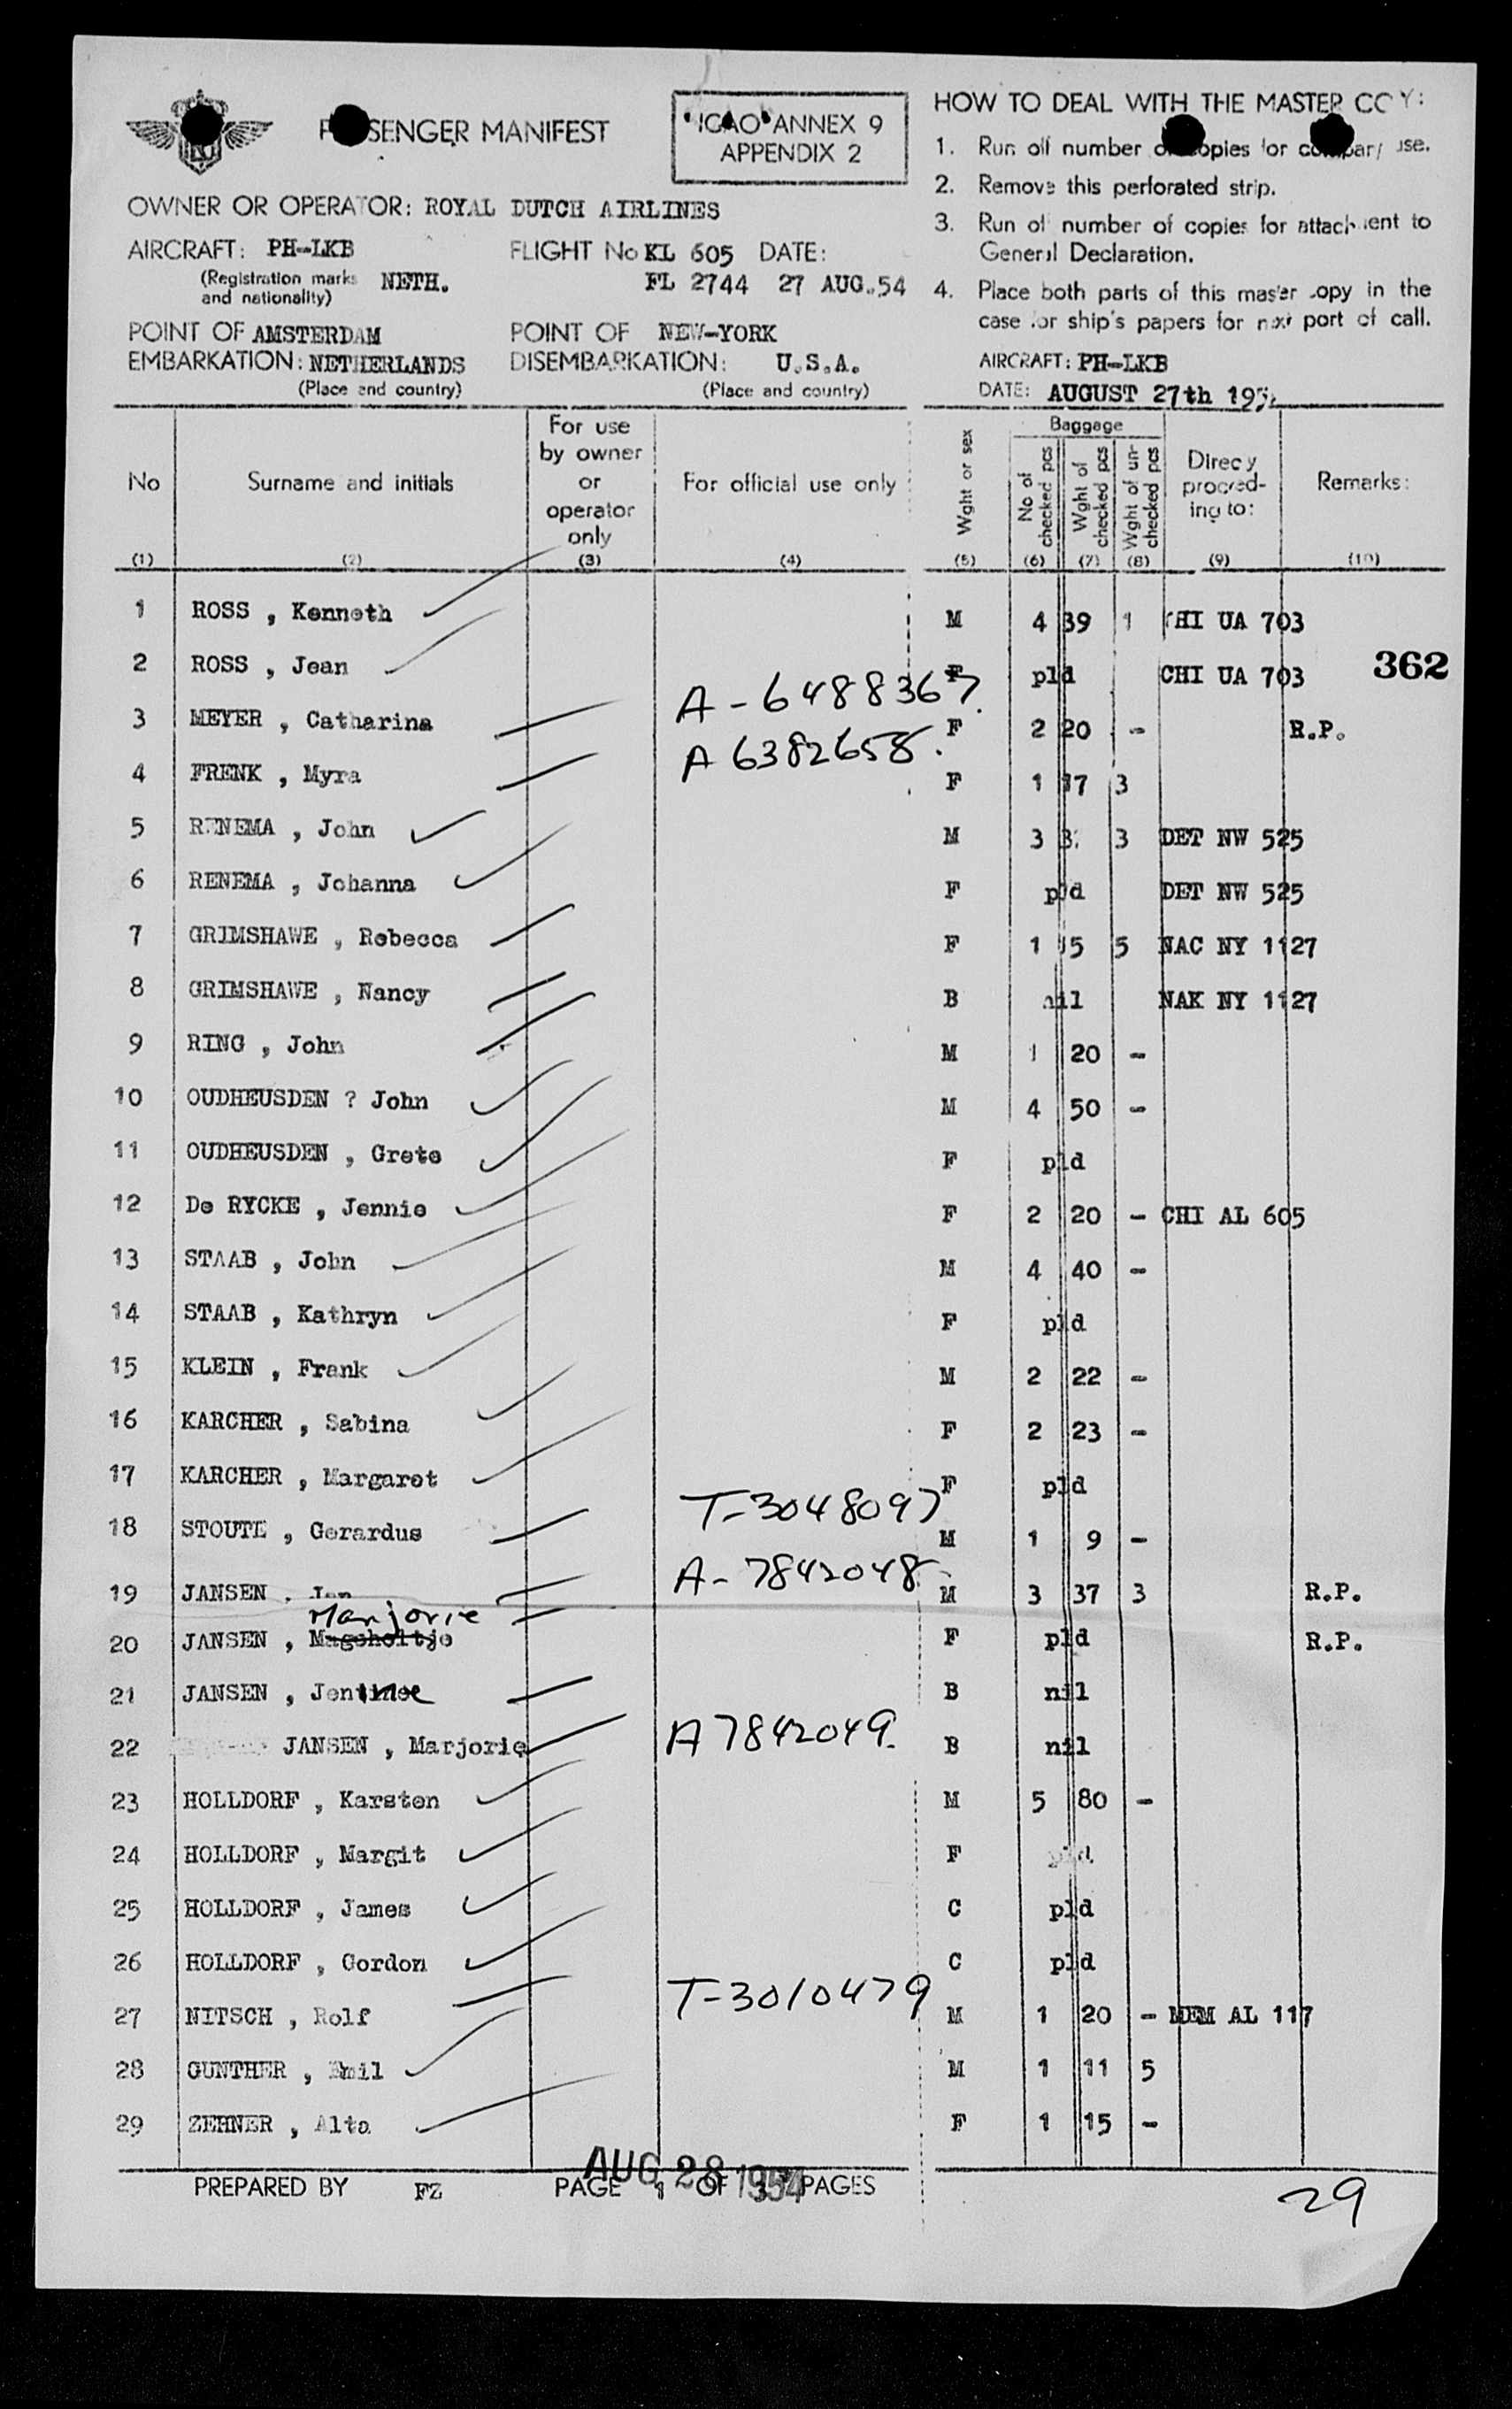 PASSENGER MANIFEST
ICAO ANNEX 9
APPENDIX 2
OWNER OR OPERATOR: ROYAL DUTCH AIRLINES
AIRCRAFT: PH-LKB FLIGHT No KL 605 DATE:
(Registration marks and nationality) NETH. FL 2744 27 AUG.54
POINT OF EMBARKATION: AMSTERDAM NETHERLANDS
(Place and country)
POINT OF DISEMBARKATION: NEW-YORK U.S.A.
(Place and country)
HOW TO DEAL WITH THE MASTER COPY:
1. Run off number of copies for company use.
2. Remove this perforated strip.
3. Run of number of copies for attachment to
General Declaration.
4. Place both parts of this master copy in the
case for ship's papers for next port of call.
AIRCRAFT: PH-LKB
DATE: AUGUST 27th 195
No (1) Surname and initials (2) For use by owner or operator only (3) For official use only (4) Wght or sex (5) Baggage No of checked pcs (6) Wght of checked pcs (7) Wght of un-checked pcs (8) Direcy proceed-ing to: (9) Remarks: (10)
1 ROSS , Kenneth M 4 39 1 CHI UA 703
2 ROSS , Jean F pld CHI UA 703
362
3 MEYER , Catharina A-6488367. F 2 20 - R.P.
4 FRENK , Myra A 6382658. F 1 17 3
5 RENEMA , John M 3 3 DET NW 525
6 RENEMA , Johanna F pld DET NW 525
7 GRIMSHAWE , Rebecca F 1 15 5 NAC NY 1127
8 GRIMSHAWE , Nancy B nil NAK NY 1127
9 RING , John M 1 20 -
10 OUDHEUSDEN ? John M 4 50 -
11 OUDHEUSDEN , Grete F pld
12 De RYCKE , Jennie F 2 20 - CHI AL 605
13 STAAB , John M 4 40 -
14 STAAB , Kathryn F pld
15 KLEIN , Frank M 2 22 -
16 KARCHER , Sabina F 2 23 -
17 KARCHER , Margaret F pld
18 STOUTE , Gerardus T-3048097 M 1 9 -
19 JANSEN , Jan A-7842048 M 3 37 3 R.P.
Marjorie
20 JANSEN , F pld R.P.
21 JANSEN , B nil
22 JANSEN , Marjorie A7842049. B nil
23 HOLLDORF , Karsten M 5 80 -
24 HOLLDORF , Margit F pld
25 HOLLDORF , James C pld
26 HOLLDORF , Gordon C pld
27 NITSCH , Rolf T-3010479 M 1 20 - MEM AL 117
28 GUNTHER , Emil M 1 11 5
29 ZEHNER , Alta F 1 15 -
PREPARED BY FZ PAGE 1 OF 3 PAGES
AUG 28 1954
29